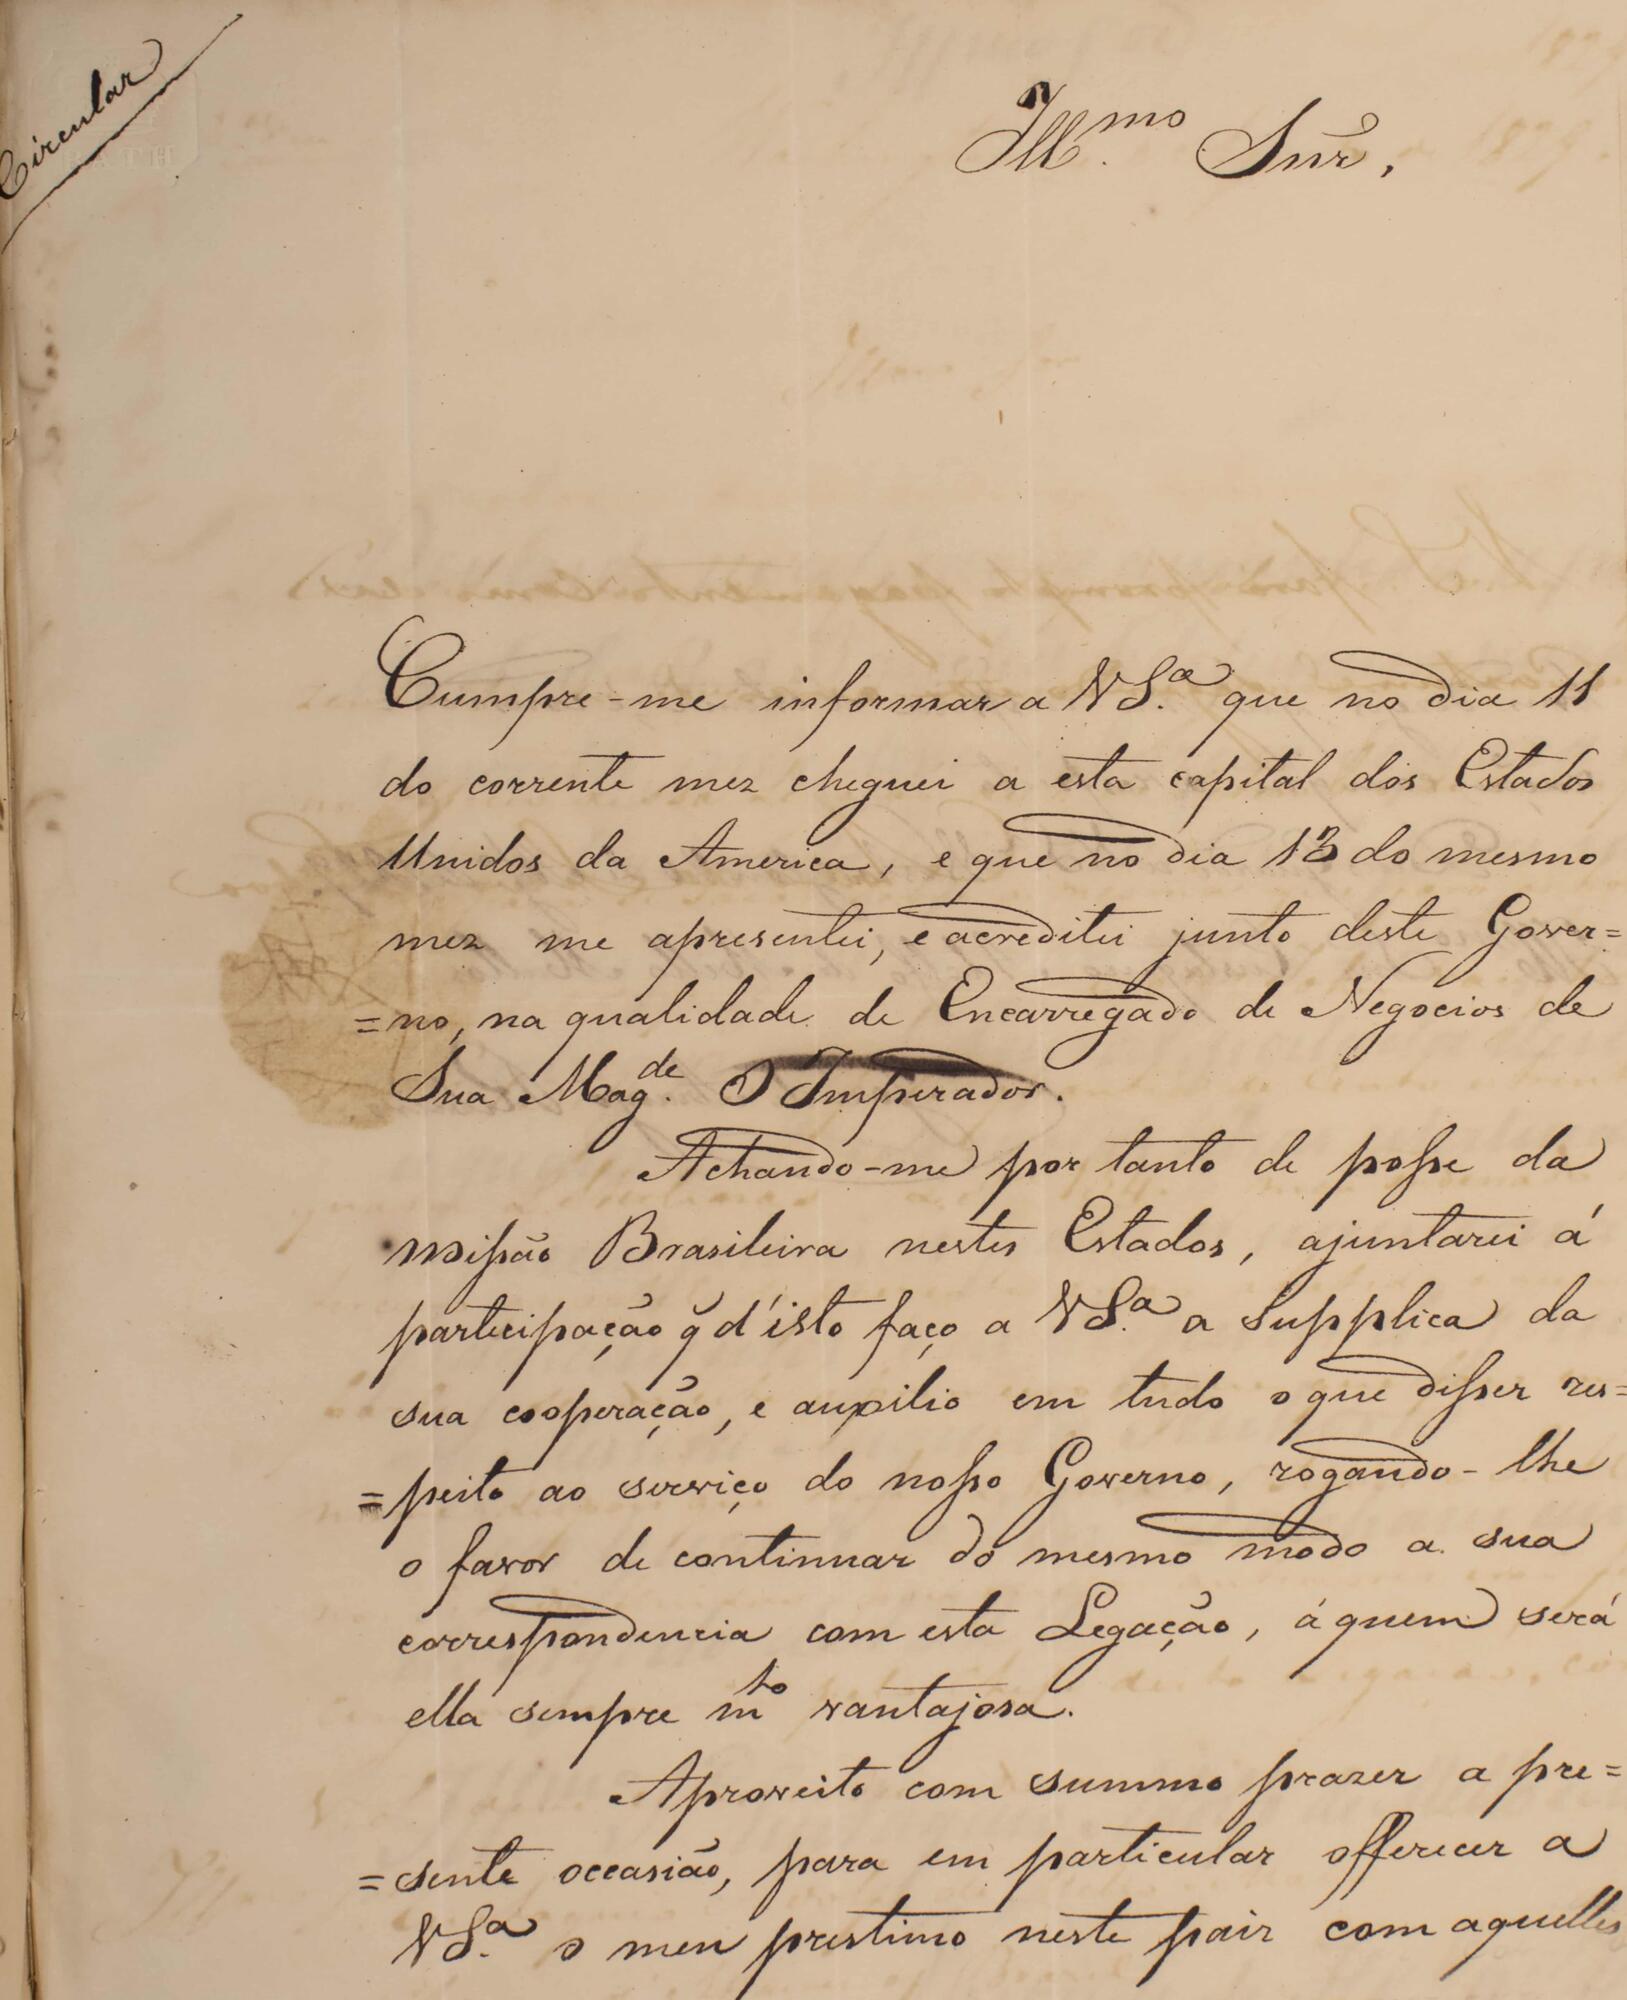 Circular
Illmo. Snr,
Cumpre-me informar a VSa. que no dia 11
do corrente mez cheguei a esta capital dos Estados
Unidos da America, e que no dia 13 do mesmo
mez me apresentei, e acreditei junto deste Gover=
=no, na qualidade de Encarregado de Negocios de
Sua Magde. O Imperador.
Achando-me por tanto de posse da
missão Brasileira nestes Estados, ajuntarei á
participação q̃ d'isto faço a VSa. a supplica da
sua cooperação, e auxilio em tudo o que disser res=
=peito ao serviço do nosso Governo, rogando-lhe
o favor de continuar do mesmo modo a sua
correspondencia com esta Legação, á quem será
ella sempre mto vantajosa.
Aproveito com summo prazer a pre=
=sente occasião, para em particular offerecer a
VSa. o meu prestimo neste paiz com aquelles